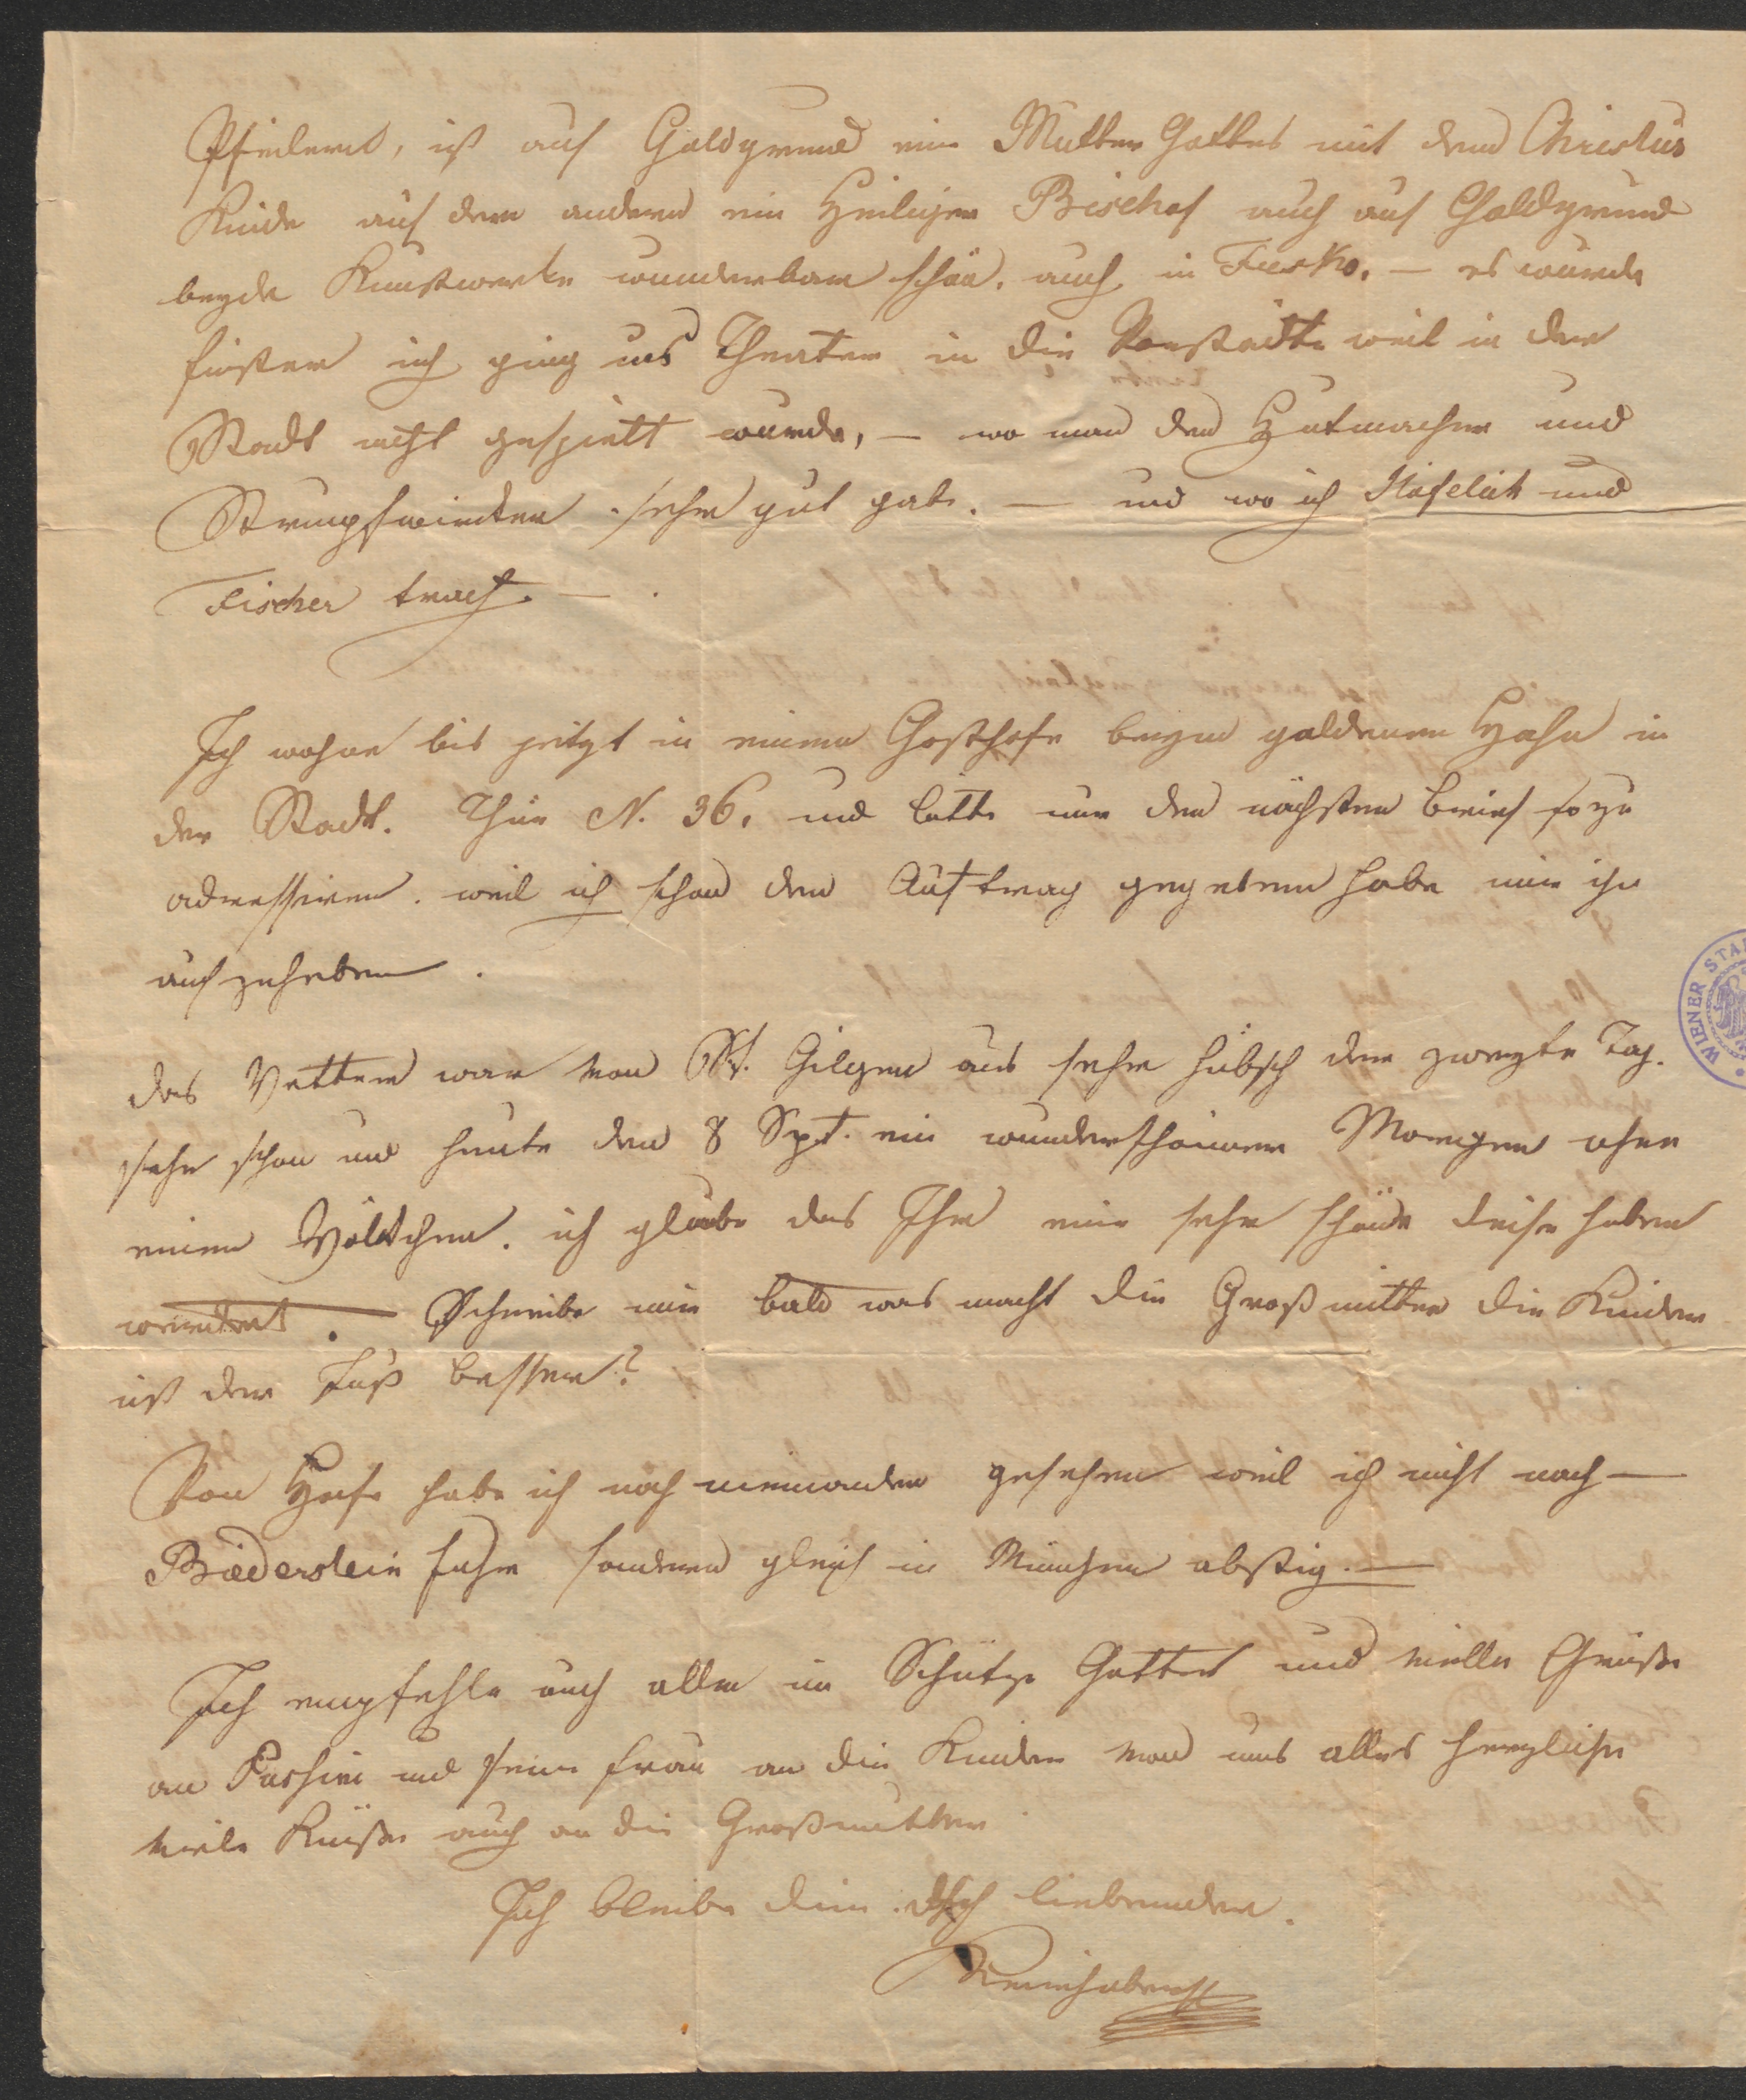 Pfeilers, ist auf Goldgrund eine Mutter Gottes mit dem Christus
Kinde auf dem andern ein Heiliger Bischof auch auf Goldgrund
beyde Kunstwerke wunderbar schön. auch in Fresko. — es wurde
finster ich ging ins Theater in die Vorstadt weil in der
Stadt nicht gespielt wurde, — wo man den Hutmacher und
Strumpfwirker sehr gut gabe. — und wo ich und
Fischer traf. —
Ich wohne bis jetzt in einem Gasthofe beym goldenen Hahn in
der Stadt. Thür N. 36. und bitte nur den nächsten Brief so zu
adressiren. weil ich schon den Auftrag gegeben habe mir ihn
aufzuheben.
das Wetter war von St. Gilgen aus sehr hübsch den zweyte Tag.
sehr schön und heute den 8 Spt. ein wunderschöner Morgen ohne
einem Wölkchen. ich glaube das Ihr eine sehr schöne Reise haben
werdet. — Schreibe mir bald was macht die Großmutter die Kinder
ist der Fuß besser?
Von Hofe habe ich noch niemanden gesehen weil ich nicht nach —
Biederstein fuhr sondern gleich in München abstig. —
Ich empfehle euch allen im Schutze Gottes und viele Grüße
an und seine Frau an die Kinder von uns alles herzliche
viele Küße auch an die Großmutter.
Ich bleibe dein dich liebender.